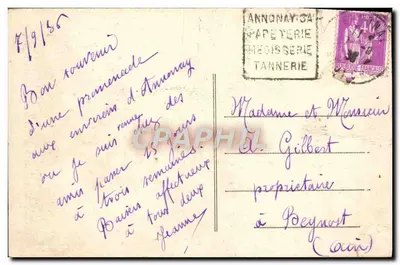 7/9/35
Bon souvenir
d'une promenade
aux environs d'Annonay
ou je suis chez des
amis passer
trois semaines.
Baisers affectueux
à tous deux
Jeanne
ANNONAY SA
PAPETERIE
MEGISSERIE
TANNERIE
Madame et Monsieur
A. Gilbert
propriétaire
à Beynost
(ain)
CPAPHIL